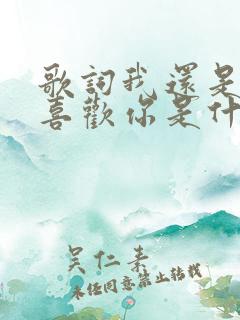 歌詞我還是
喜歡你是什
吴仁素
未经同意禁止转载